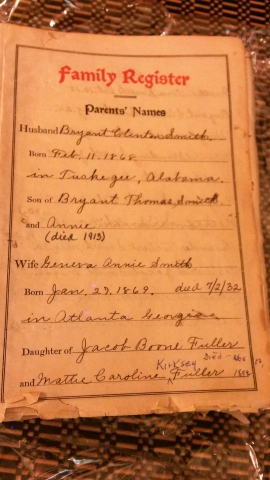 Family Register
Parents' Names
Husband Bryant Clinton Smith
Born Feb. 11. 1868
in Tuskegee, Alabama.
Son of Bryant Thomas Smith
and Annie
(died 1913)
Wife Geneva Annie Smith
Born Jan. 27. 1869. died 7/2/32
in Atlanta Georgia
Daughter of Jacob Boone Fuller
Kirksey Died
and Mattie Caroline ^ Fuller